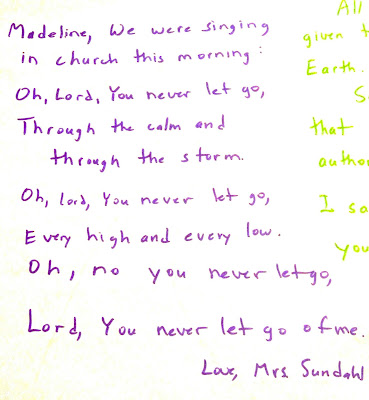 Madeline, We were singing
in church this morning:
Oh, Lord, You never let go,
Through the calm and
through the storm.
Oh, lord, You never let go,
Every high and every low.
Oh, no you never let go,
Lord, You never let go of me.
Love, Mrs. Sundahl
All
given t
Earth.
S
that
author
I sa
you